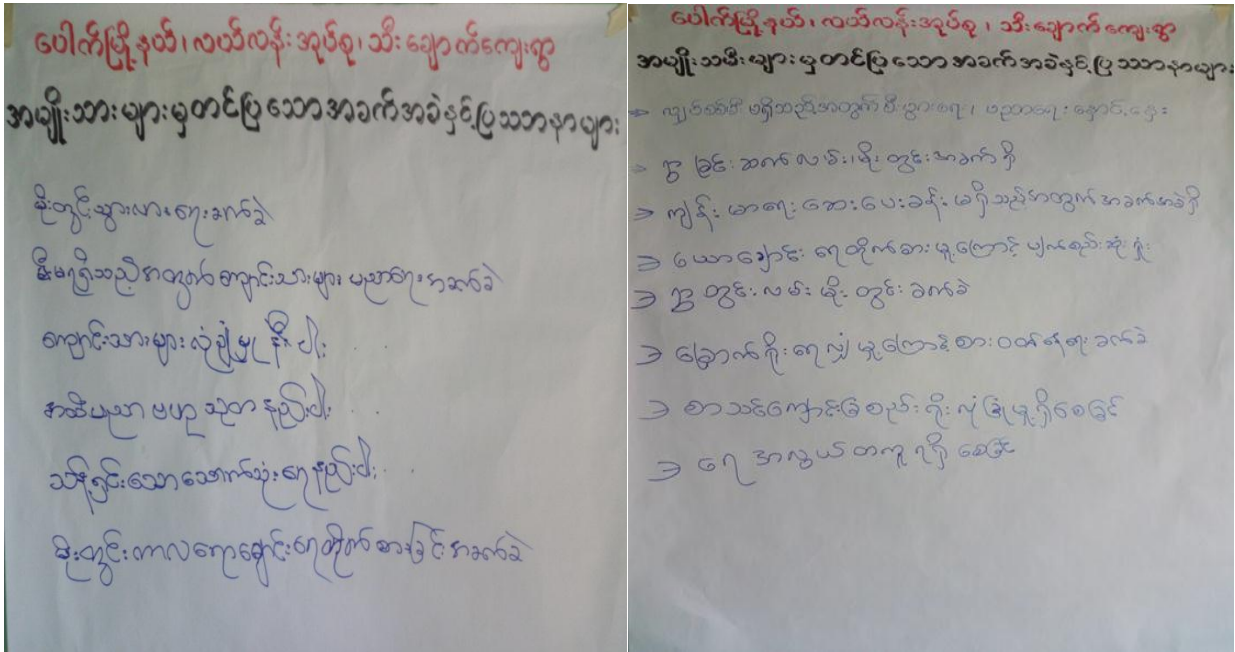 ပေါက်မြို့နယ်၊ လယ်လန်းအုပ်စု၊ သီးချောက်ကျေးရွာ
အမျိုးသားများမှတင်ပြသောအခက်အခဲနှင့်ပြဿနာများ
မိုးတွင်းသွားလာရေးခက်ခဲ
မီးမရရှိသည့်အတွက်ကျောင်းသားများပညာရေးအခက်ခဲ
ကျောင်းသားများလုံခြုံမှု နည်းပါး
အထိပညာ ဗဟုသုတ နည်းပါး . . .
သန့်ရှင်းသောသောက်သုံးရေနည်းပါး . . .
မိုးတွင်းကာလယောချောင်းရေတိုက်စားခြင်းအခက်ခဲ
ပေါက်မြို့နယ်၊ လယ်လန်းအုပ်စု၊ သီးချောက်ကျေးရွာ
အမျိုးသမီးများမှတင်ပြသောအခက်အခဲနှင့်ပြဿနာများ
⇒ လျှပ်စစ်မီး မရှိသည့်အတွက် စီးပွားရေး၊ ပညာရေး နှောင့်နှေး
⇒ ခြင်းဆက်လမ်း မိုးတွင်းအခက်ရှိ
⇒ ကျန်းမာရေးဆေးပေးခန်း မရှိသည့်အတွက် အခက်အခဲရှိ
⇒ ယောချောင်း ရေတိုက်စားမှုကြောင့် ပျက်စည်းဆုံးရှုံး
⇒ တွင်းလမ်း မိုးတွင်းခက်ခဲ
⇒ ရေလျှံမှုကြောင့် စားဝတ်နေရေးခက်ခဲ
⇒ စာသင်ကျောင်းခြံစည်းရိုး လုံခြုံမှုရှိစေခြင်
⇒ ရေ အလွယ်တကူ ရရှိစေခြင်